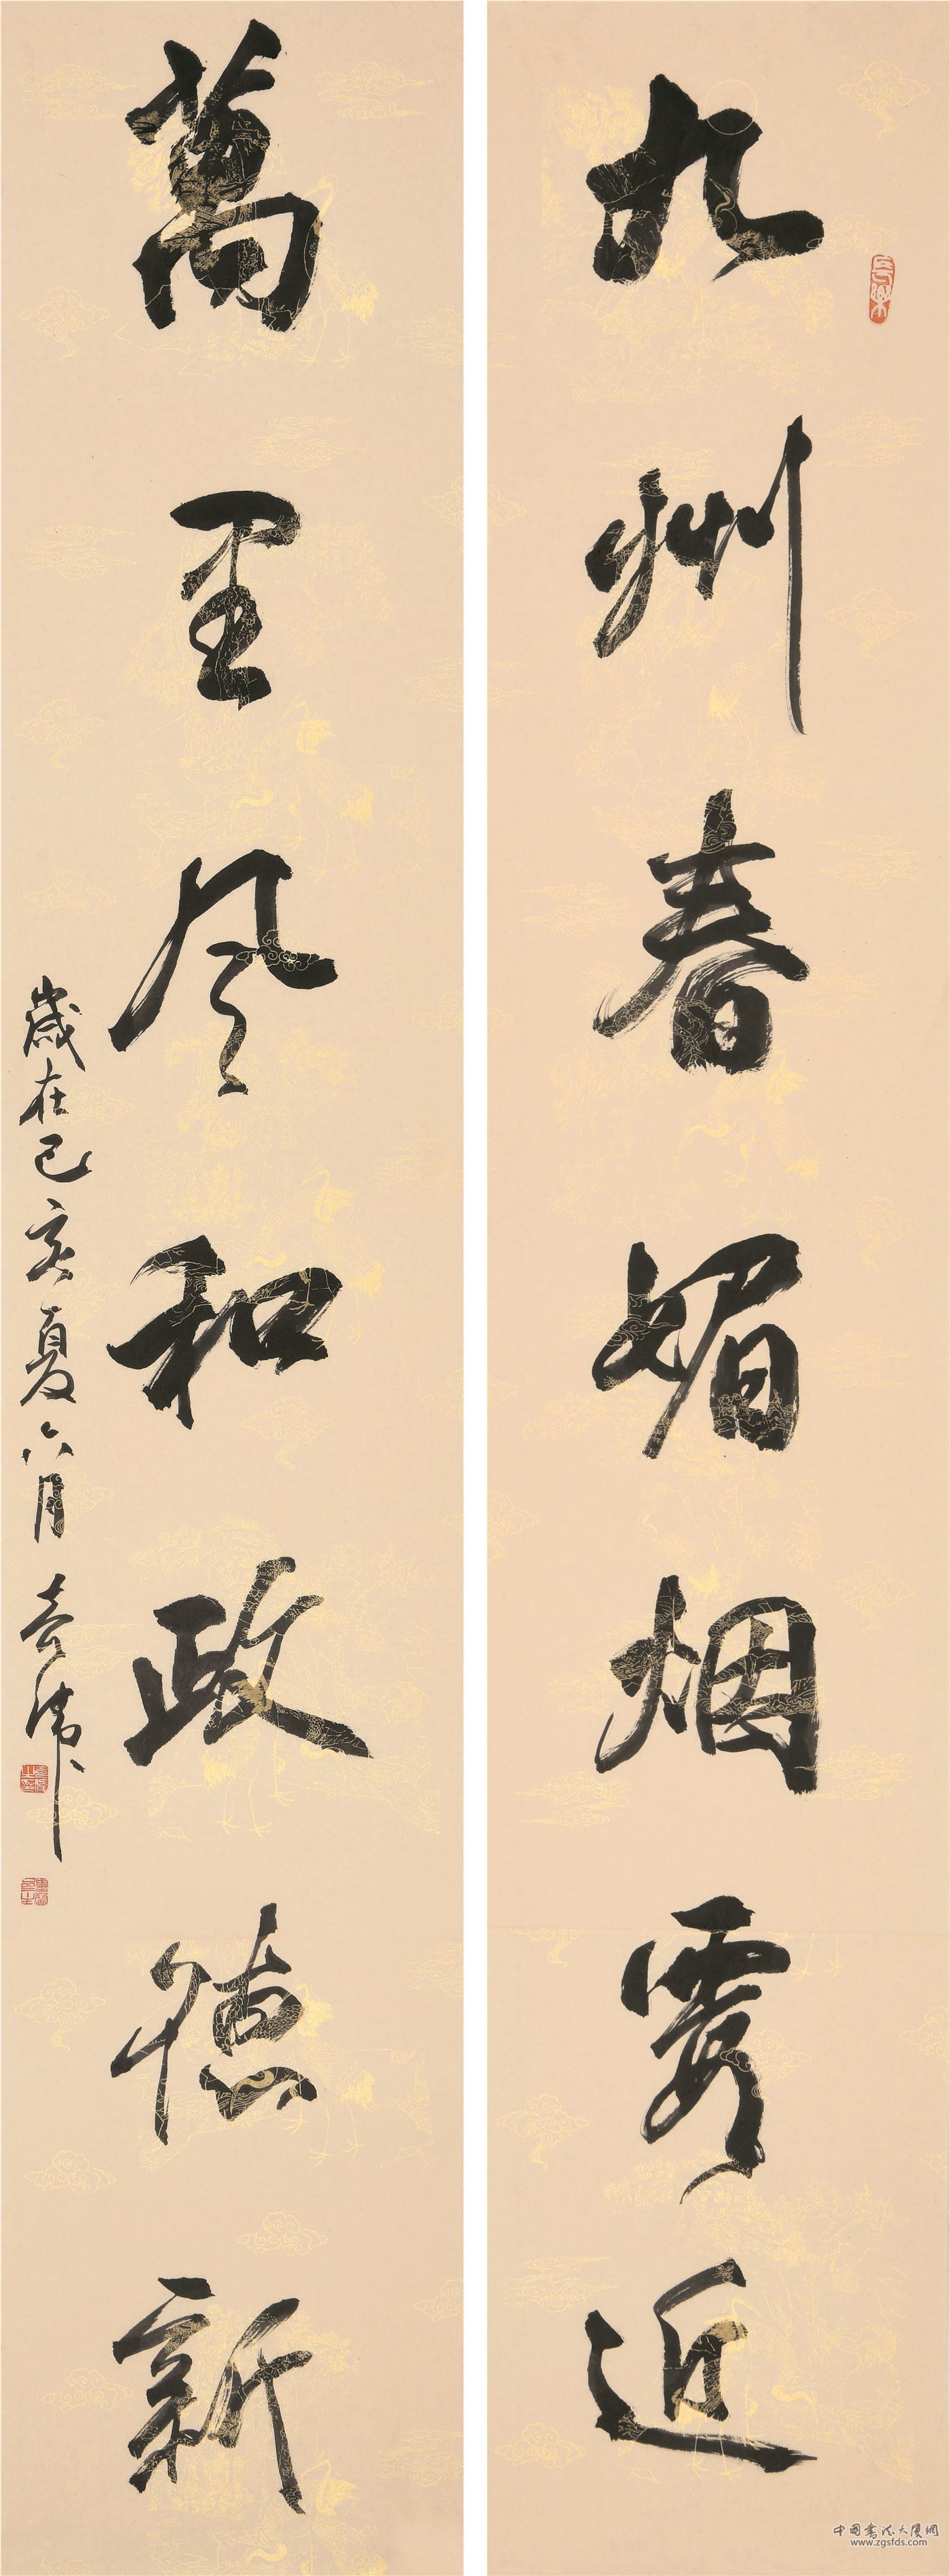 九州春媚烟霞近
萬里风和政德新
歲在己亥夏六月
中国书法大厦网
www.zgsfds.com